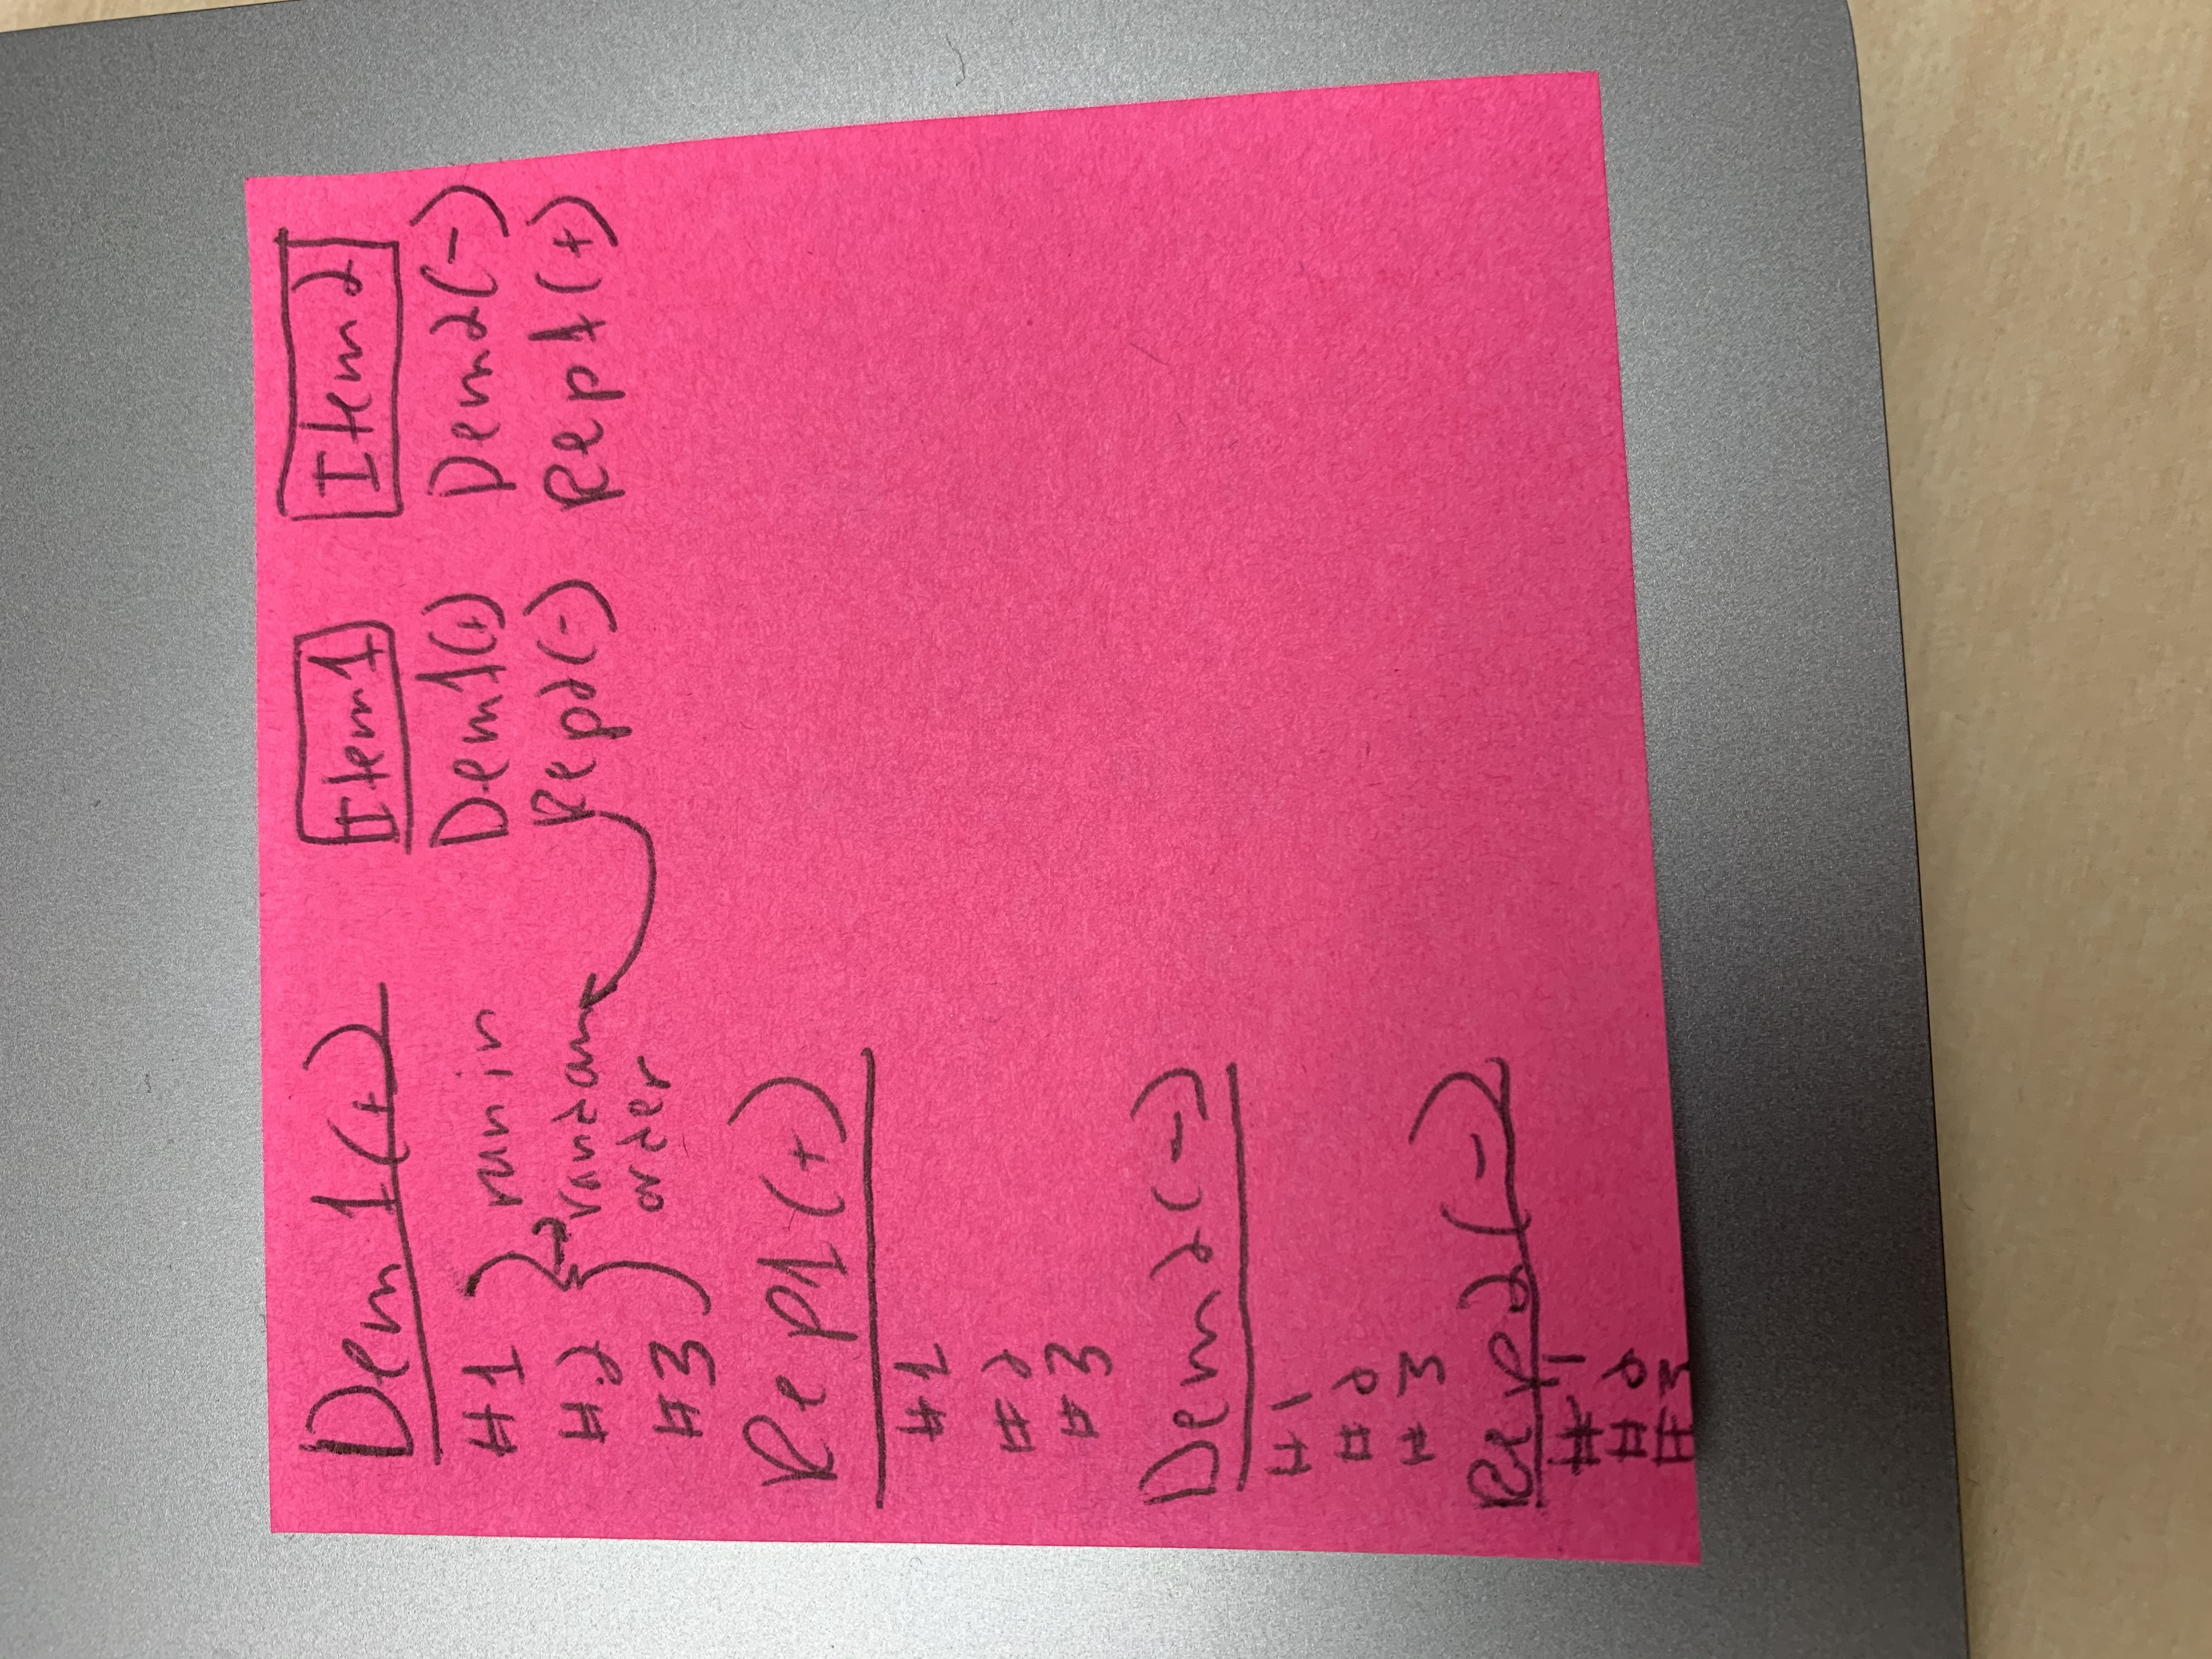 Dem1(+)
#1
#2
#3
ran in
random
order
Rep1(+)
#1
#2
#3
Dem2(-)
#1
#2
#3
Rep2(-)
#1
#2
#3
Item1
Dem1(+)
Rep2(-)
Item2
Dem2(-)
Rep1(+)